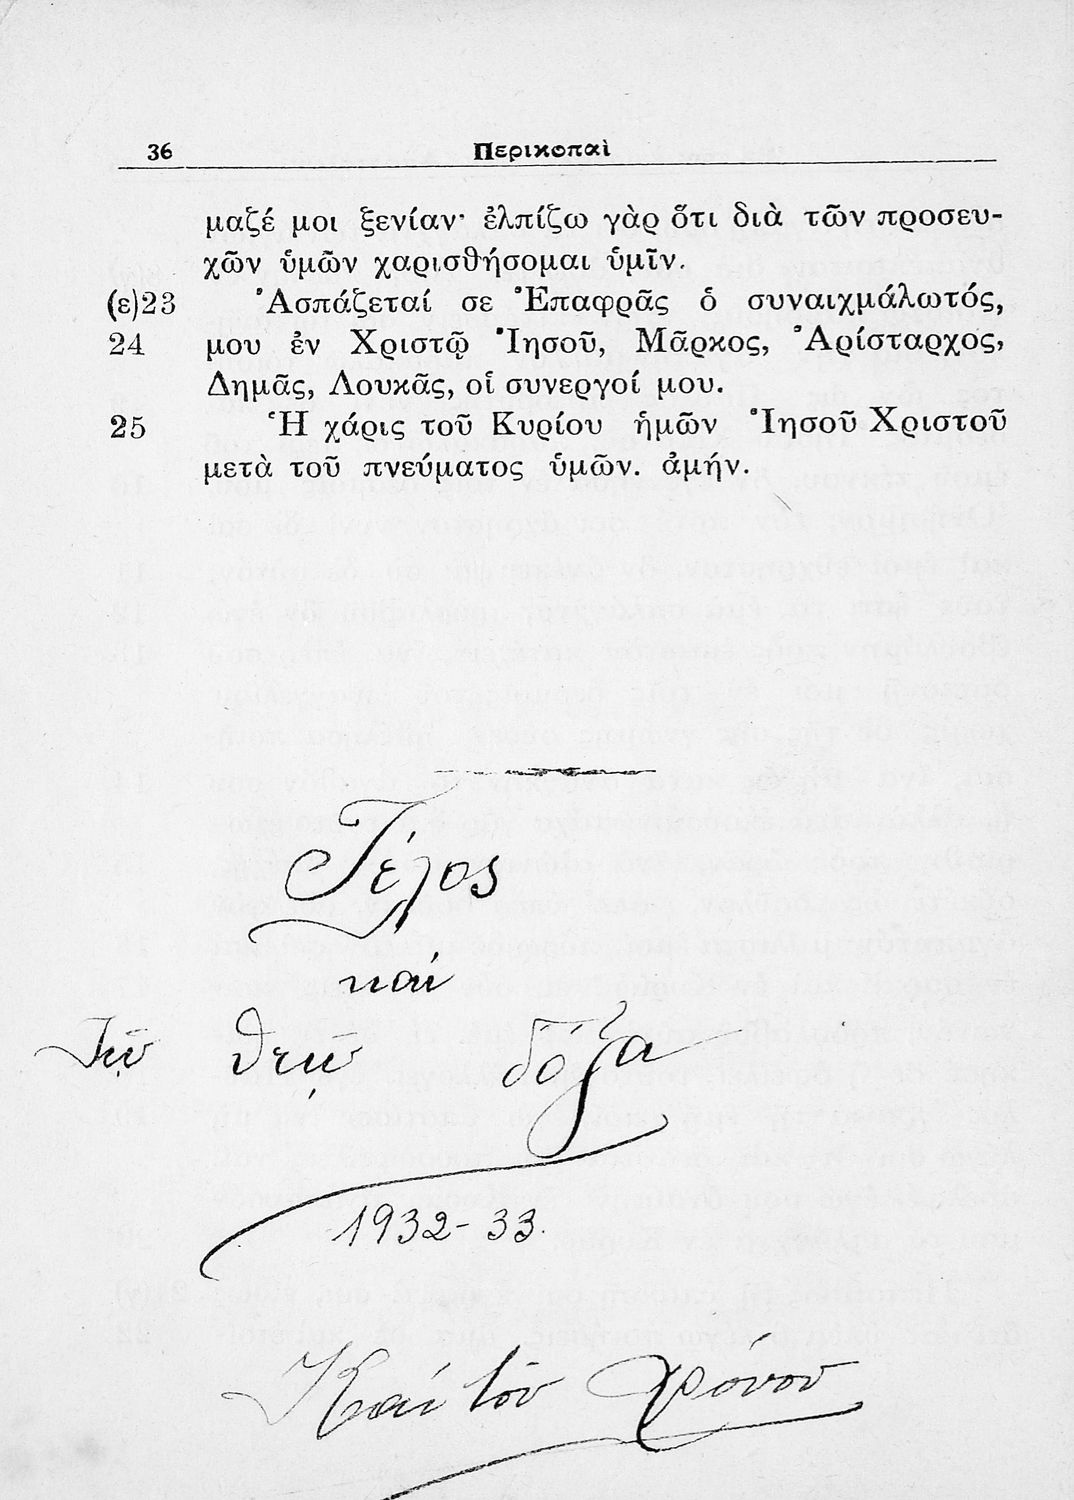 36 Περικοπαὶ
μαζέ μοι ξενίαν· ἐλπίζω γὰρ ὅτι διὰ τῶν προσευ-
χῶν ὑμῶν χαρισθήσομαι ὑμῖν.
(ε)23 Ἀσπάζεταί σε Ἐπαφρᾶς ὁ συναιχμάλωτός,
24 μου ἐν Χριστῷ Ἰησοῦ, Μᾶρκος, Ἀρίσταρχος,
Δημᾶς, Λουκᾶς, οἱ συνεργοί μου.
25 Ἡ χάρις τοῦ Κυρίου ἡμῶν Ἰησοῦ Χριστοῦ
μετὰ τοῦ πνεύματος ὑμῶν. ἀμήν.
Τέλος
καὶ
Τῷ θεῷ δόξα
1932-33.
Καὶ τοῦ χρόνου